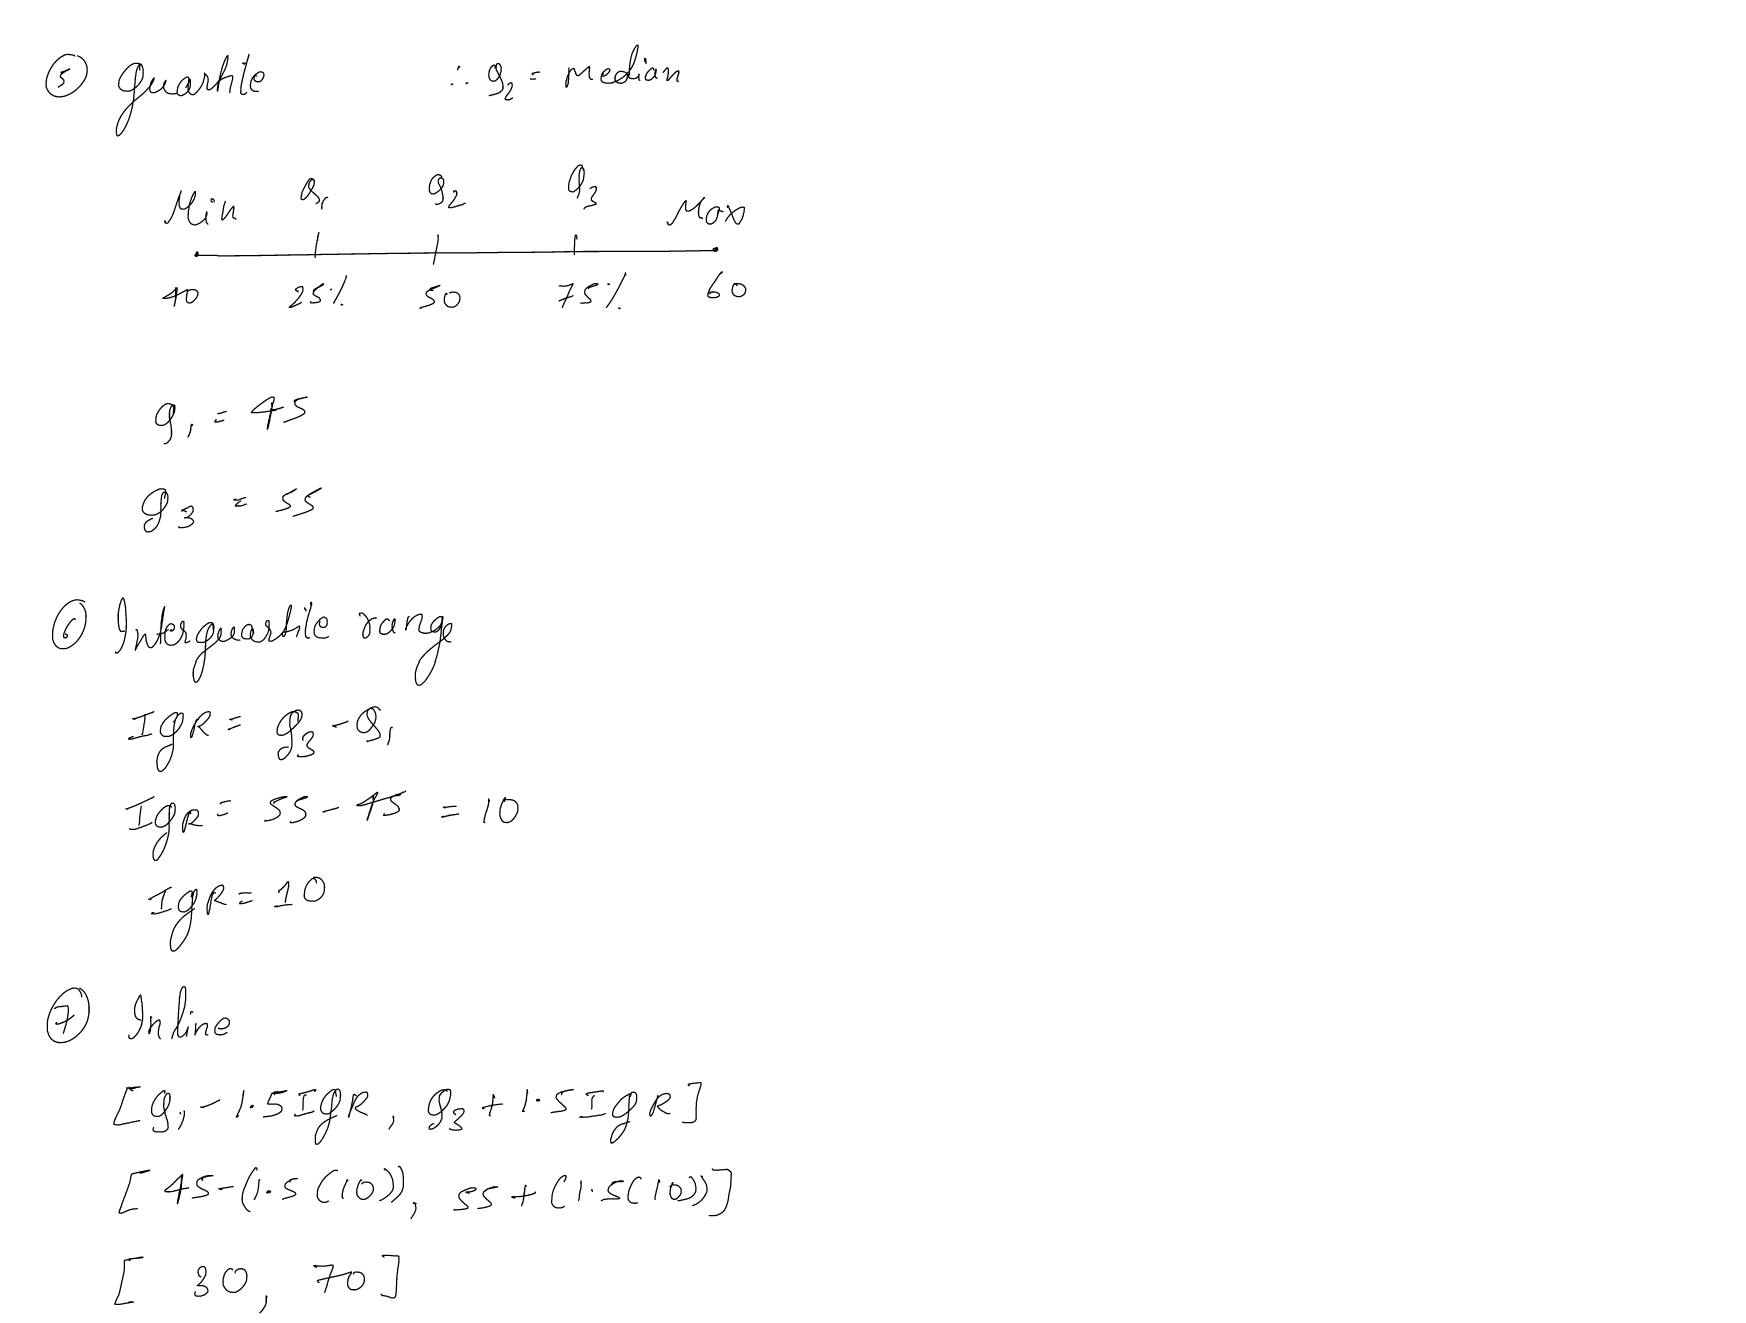 ⑤ Quartile ∴ Q₂ = Median
Min Q₁ Q₂ Q₃ Max
40 25% 50 75% 60
Q₁ = 45
Q₃ = 55
⑥ Interquartile range
IQR = Q₃ - Q₁
IQR = 55 - 45 = 10
IQR = 10
⑦ Inline
[Q₁ - 1.5IQR, Q₃ + 1.5IQR]
[45-(1.5(10)), 55+(1.5(10))]
[30, 70]